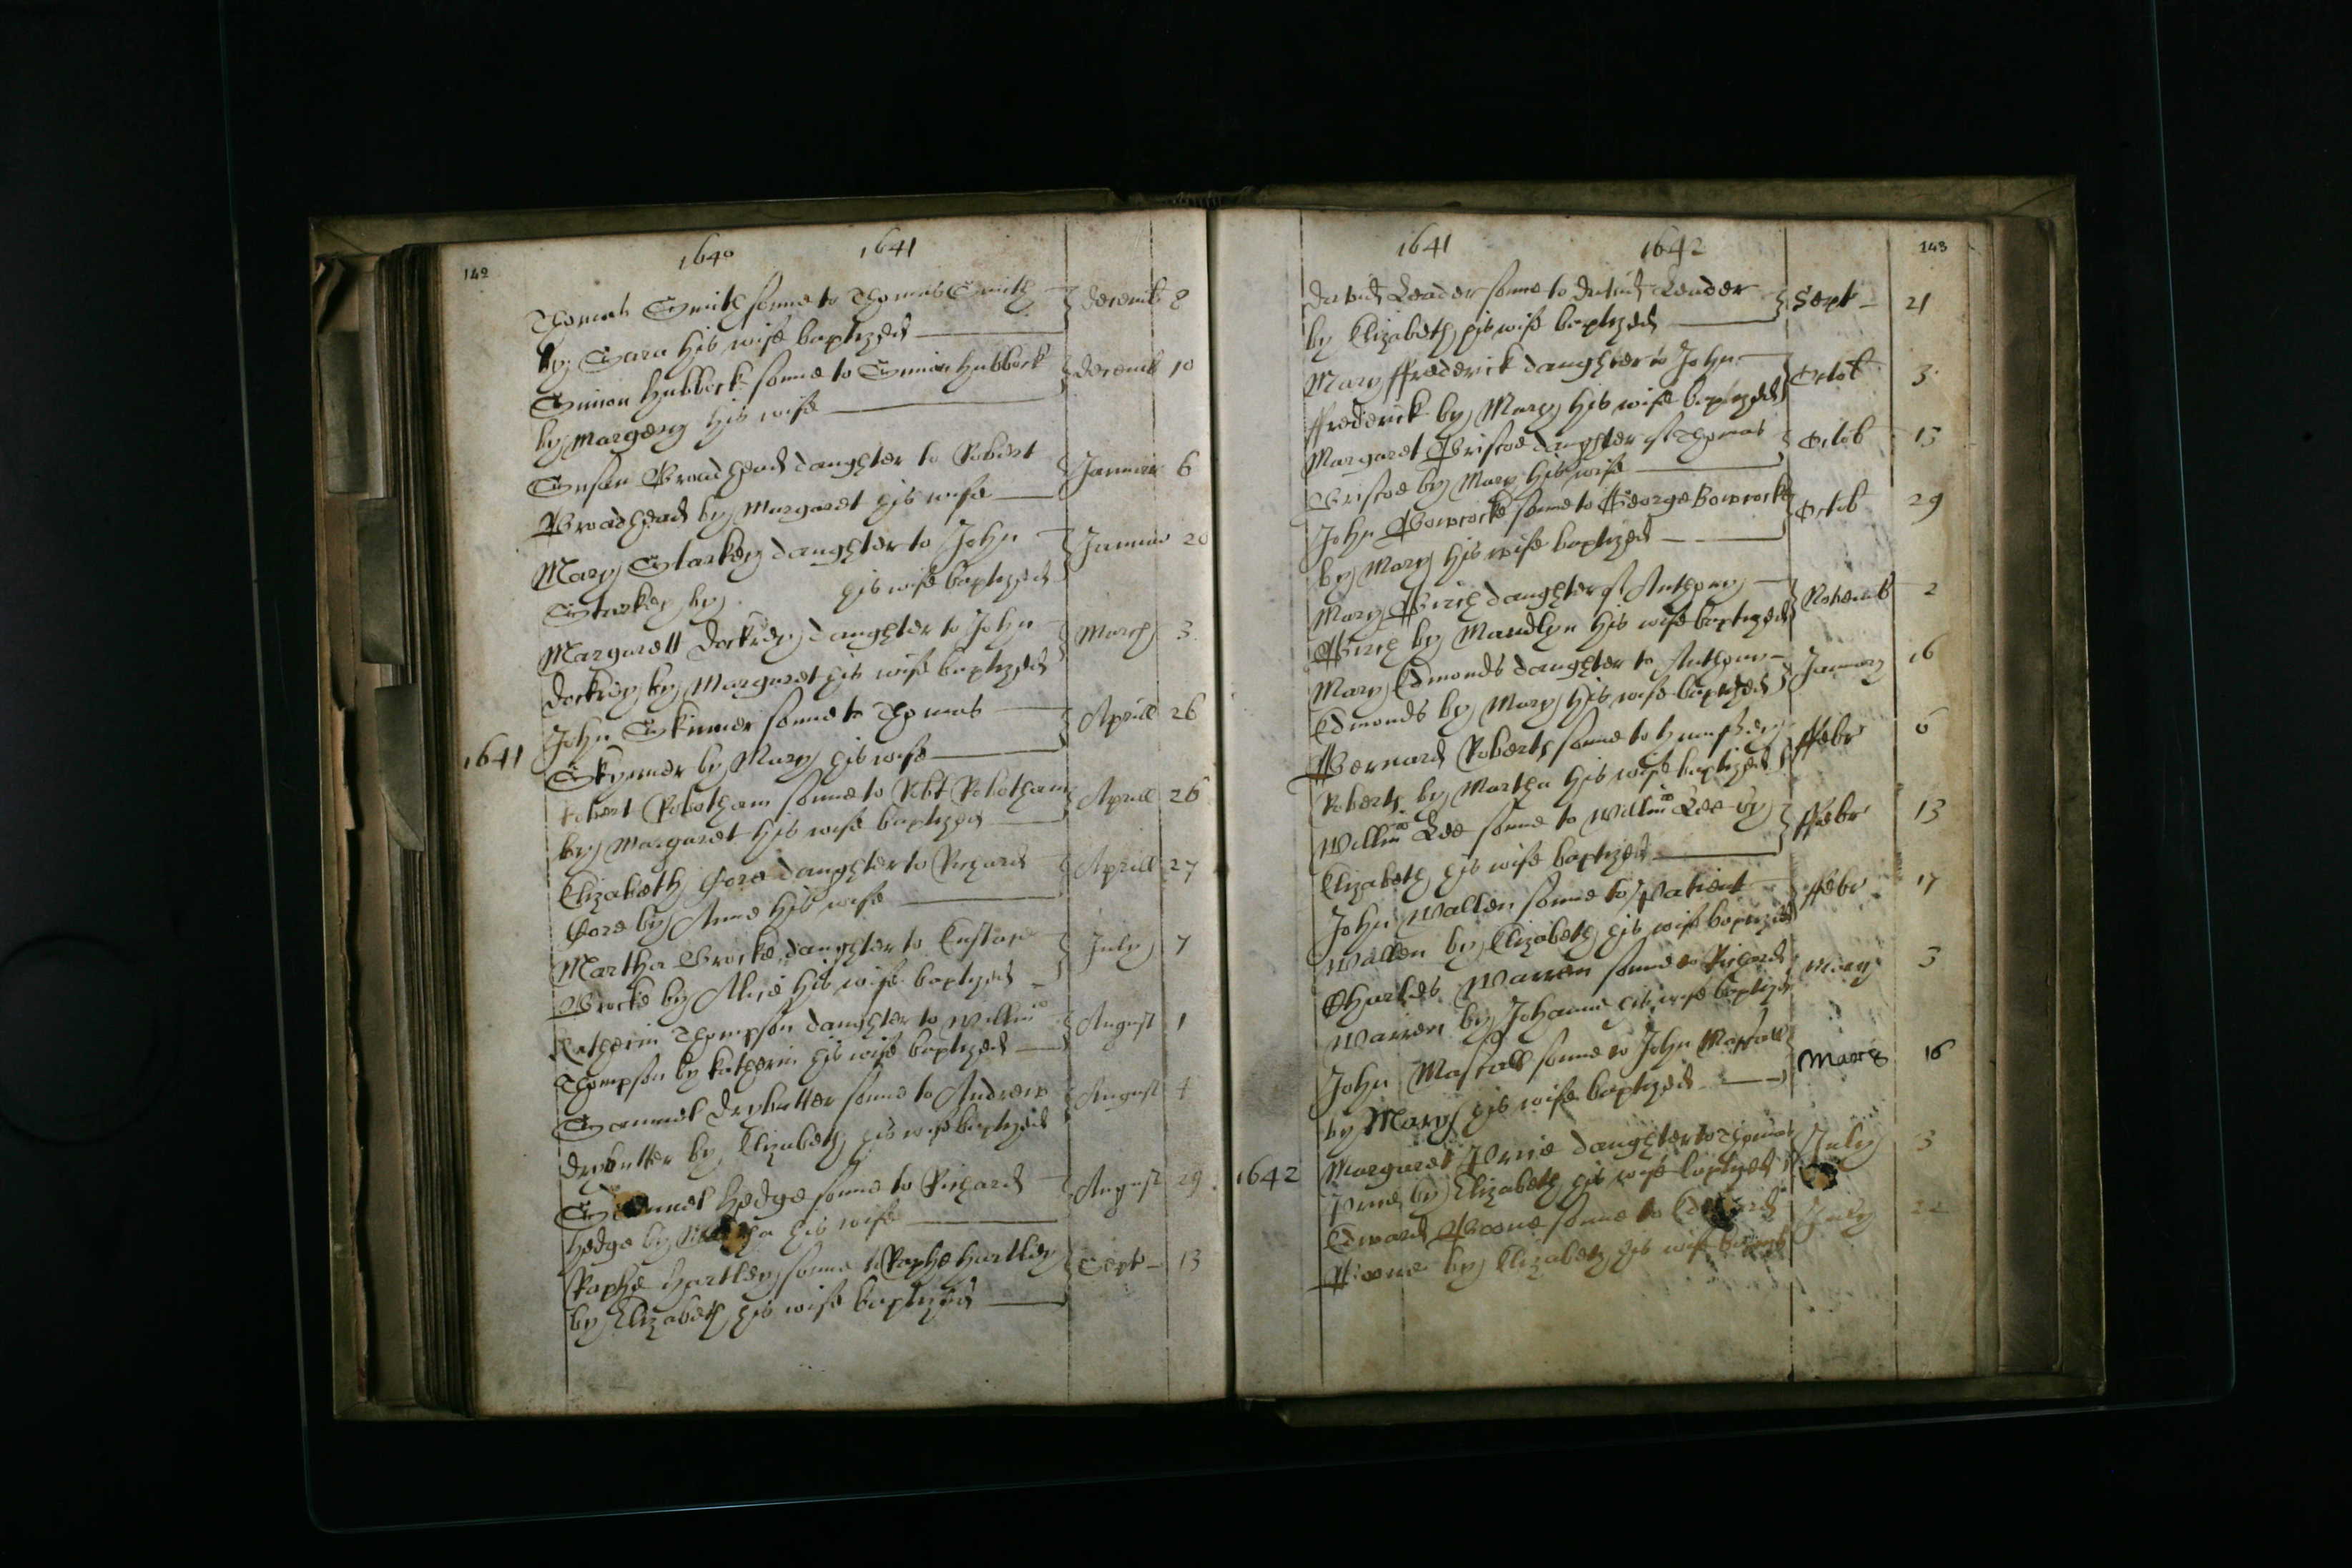 142
1640 1641
Thomas Smith sonne to Thomas Smith Decemb 8
by Sara his wife baptized
Simon Hubbock sonne to Simon Hubbock Decemb 10
by Margery his wife
Susan Broadhead daughter to Robert Januar 6
Broadhead by Margaret his wife
Mary Starkey daughter to John Januar 20
Starkey by his wife baptized
Margarett Dockrey daughter to John March 3
Dockrey by Margaret his wife baptized
John Skinner sonne to Thomas Aprill 26
1641 Skynner by Mary his wife
Robert Robotham sonne to Robt Robotham Aprill 26
by Margaret his wife baptized
Elizabeth Gore daughter to Richard Aprill 27
Gore by Anne his wife
Martha Brocke daughter to Eustace July 7
Brocke by Alice his wife baptized
Katherin Thompson daughter to Willm August 1
Thompson by Katherin his wife baptized
Samuel Drybutter sonne to Andrew August 4
Drybutter by Elizabeth his wife baptized
Samuel Hedge sonne to Richard August 29
Hedge by his wife
Raphe Hartley sonne to Raphe Hartley Sept 13
by Elizabeth his wife baptized
143
1641 1642
David Leader sonne to David Leader Sept 21
by Elizabeth his wife baptized
Mary ffrederick daughter to John Octob 3
ffrederick by Mary his wife baptized
Margaret Briscoe daughter of Thomas Octob 15
Briscoe by Mary his wife
John Bowcocke sonne to George Bowcocke Octob 29
by Mary his wife baptized
Mary Birch daughter of Anthony Novemb 2
Birch by Maudlyn his wife baptized
Mary Edmonds daughter to Anthony January 16
Edmonds by Mary his wife baptized
Bernard Roberts sonne to Humfrey ffebr 6
Roberts by Martha his wife baptized
Willm Lee sonne to Willm Lee by ffebr 13
Elizabeth his wife baptized
John Wallen sonne to Patient ffebr 17
Wallen by Elizabeth his wife baptized
Charles Warren sonne to Richard March 3
Warren by Johanna his wife baptized
John Mascall sonne to John Mascall March 16
by Mary his wife baptized
1642 Margaret daughter to Thomas July 3
by Elizabeth his wife baptized
Edward Boone sonne to Edward July 22
Boone by Elizabeth his wife